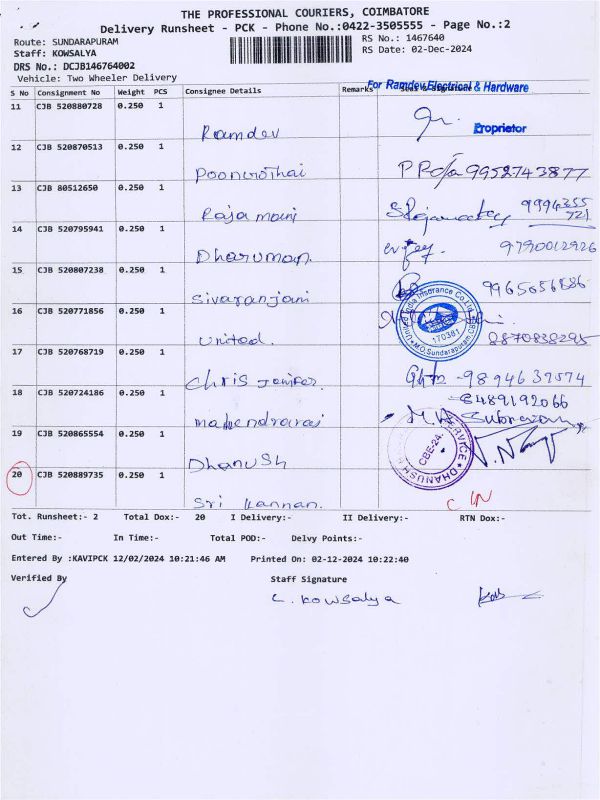 THE PROFESSIONAL COURIERS, COIMBATORE
Delivery Runsheet - PCK - Phone No.:0422-3505555 - Page No.:2
Route: SUNDARAPURAM
RS No.: 1467640
Staff: KOWSALYA
RS Date: 02-Dec-2024
DRS No.: DCJB146764002
Vehicle: Two Wheeler Delivery
For Ramdev Electrical & Hardware
S No Consignment No Weight PCS Consignee Details Remarks
11 CJB 520880728 0.250 1
Ramdev
Proprietor
12 CJB 520870513 0.250 1
9952743877
13 CJB 80512650 0.250 1
Rajamani
9994355
721
14 CJB 520795941 0.250 1
Dharuman
9790012926
15 CJB 520807238 0.250 1
Sivaranjani
9965656886
16 CJB 520771856 0.250 1
United.
United India Insurance Co.Ltd.
170381
M.O, Sundarapuram, CBE
8870838295
17 CJB 520768719 0.250 1
Chris Jenifer
18 CJB 520724186 0.250 1
Mahendraraj
8489192066
19 CJB 520865554 0.250 1
Dhanush
DHANUSH SERVICE
CBE-24.
20 CJB 520889735 0.250 1
Sri Kannan
Tot. Runsheet:- 2 Total Dox:- 20 I Delivery:- II Delivery:- RTN Dox:-
Out Time:- In Time:- Total POD:- Delvy Points:-
Entered By :KAVIPCK 12/02/2024 10:21:46 AM Printed On: 02-12-2024 10:22:40
Verified By Staff Signature
C. Kowsalya